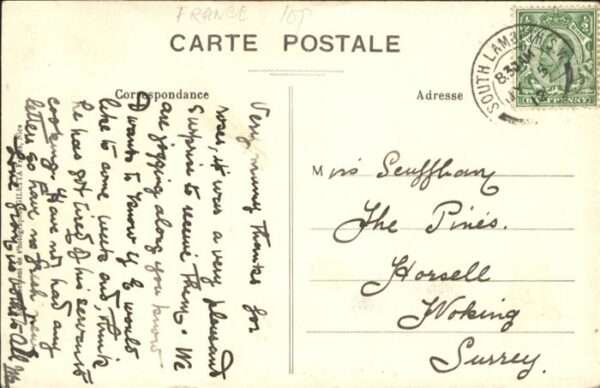 FRANCE 10F
CARTE POSTALE
Correspondance
Adresse
SOUTH LAMBETH S
8.30 AM
12
HALFPENNY
Very many thanks for
roses, it was a very pleasant
surprise to receive them. We
are jogging along you know
D wants to know if E would
like to come weeks end, think
he has got tired of his servants
cooking. Have not had any
letters so have no fresh news
Love
to All
Miss Scuffham
The Pines.
Horsell
Woking
Surrey.